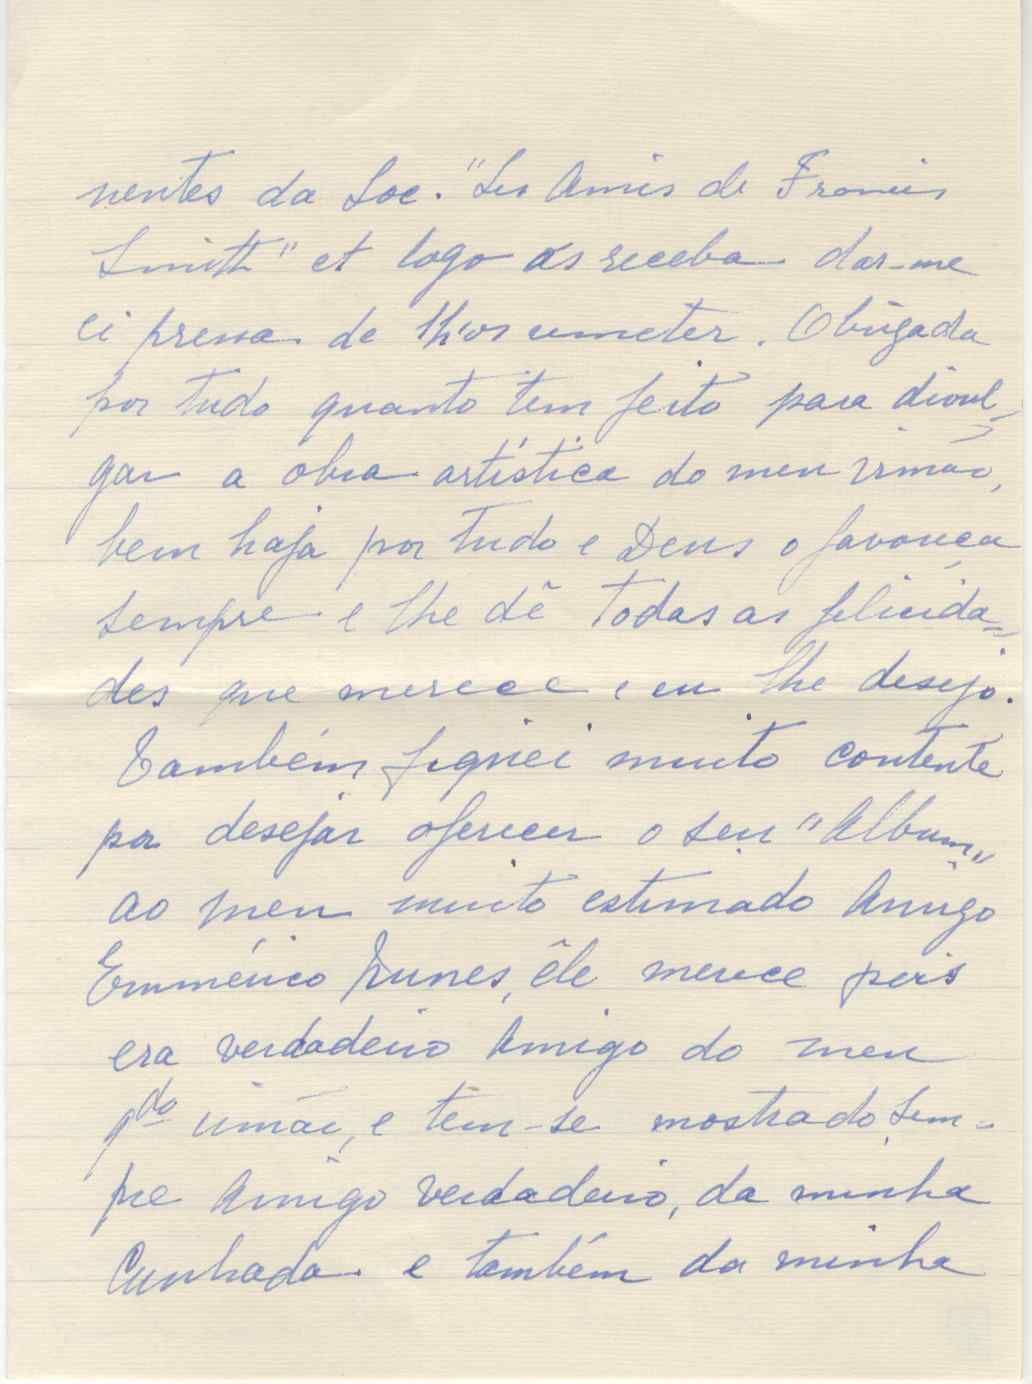 nentes da Soc. "Les Amis de Francis
Smith" et logo as receba dar-me
ei pressa de lh'os remeter. Obrigada
por tudo quanto tem feito para divul-
gar a obra artística do meu irmão,
bem haja por tudo e Deus o favoreça
sempre e lhe dê todas as felicida=
des que merece e eu lhe desejo.
Também fiquei muito contente
por desejar oferecer o seu "Album"
ao meu muito estimado Amigo
Emmérico Nunes, êle merece pois
era verdadeiro Amigo do meu
qdo irmão, e têm-se mostrado sem=
pre Amigo verdadeiro, da minha
Cunhada e também da minha